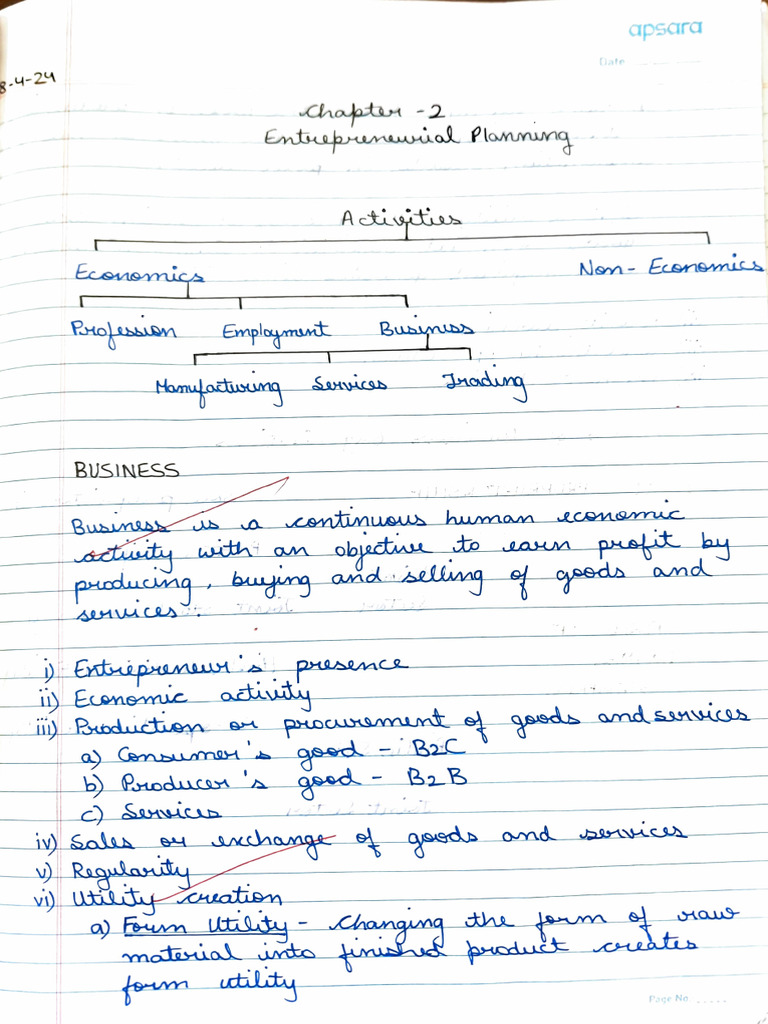 apsara
Date
8-4-24
Chapter - 2
Entrepreneurial Planning
Activities
Economics Non- Economics
Profession Employment Business
Manufacturing Services Trading
BUSINESS
Business is a continuous human economic
activity with an objective to earn profit by
producing, buying and selling of goods and
services.
i) Entrepreneur's presence
ii) Economic activity
iii) Production or procurement of goods and services
a) Consumer's good - B2C
b) Producer's good - B2B
c) Services
iv) Sales or exchange of goods and services
v) Regularity
vi) Utility creation
a) Form Utility - Changing the form of raw
material into finished product creates
form utility
Page No.